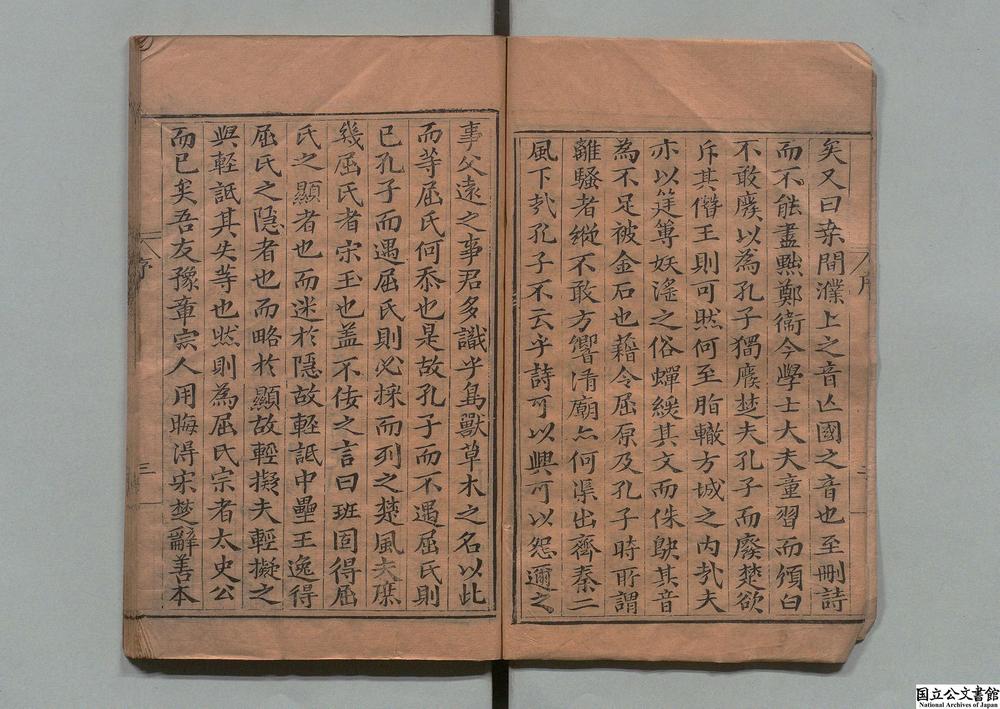 矣又曰桒間濮上之音亡國之音也至刪詩
而不能盡黜鄭衞今學士大夫童習而頒白
不敢廢以為孔子獨廢楚夫孔子而廢楚欲
斥其僭王則可然何至脂轍方城之内㢤夫
亦以筳篿妖滛之俗蟬緩其文而侏鴃其音
為不足被金石也藉令屈原及孔子時所謂
離騷者縱不敢方響清廟亦何渠出齊秦二
風下㢤孔子不云乎詩可以興可以怨邇之
事父遠之事君多識乎鳥獸草木之名以此
而等屈氏何忝也是故孔子而不遇屈氏則
已孔子而遇屈氏則必採而列之楚風夫庶
幾屈氏者宋玉也盖不佞之言曰班固得屈
氏之顯者也而迷於隱故輕詆中壘王逸得
屈氏之隱者也而略於顯故輕擬夫輕擬之
與輕詆其失等也然則為屈氏宗者太史公
而已矣吾友豫章宗人用晦得宋楚辭善本
序
三
国立公文書館
National Archives of Japan